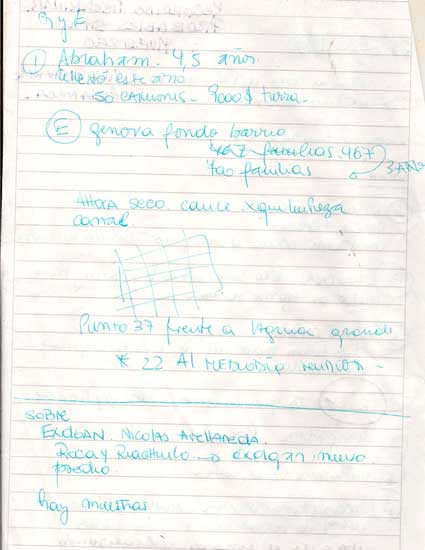 R y E
① Abraham. 4,5 años.
este año
50 CAMIONES. 9000$ tierra.
Ⓔ genova fondo barrio
467 familias 467
700 familias
3 AÑO
AHORA seco cauce x que limpieza
canal
Punto 37 frente a laguna grande
* 22 Al MEDIODÍA reunión -
SOBRE
NICOLAS Avellaneda.
Roca y Riachuelo → nuevo
predio.
hay muestras